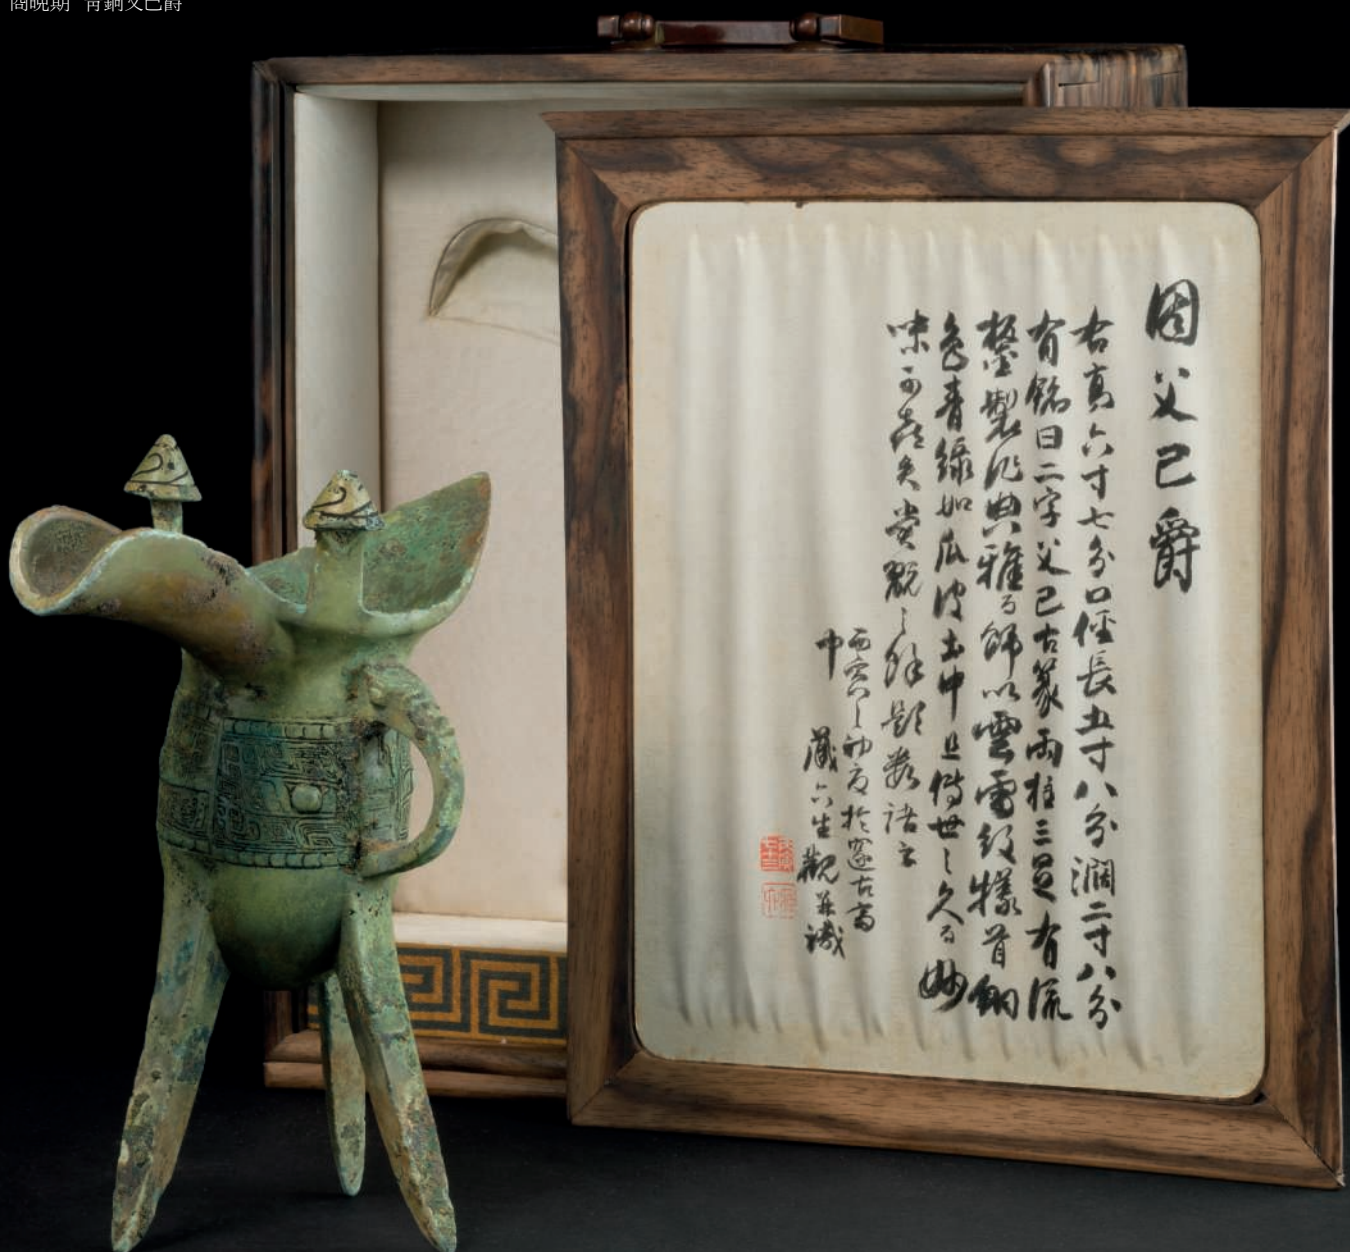 商晚期 青銅父己爵
周父己爵
右高六寸七分口徑長五寸八分濶二寸八分
有銘曰二字父己古篆兩柱三足有流
鋬製作典雅而飾以雲雷紋犧首銅
色青綠如瓜皮土中且傳世之久而妙
味可喜矣賞翫之餘題數語云
丙寅之初夏於邃古斎
中 藏六生觀並識